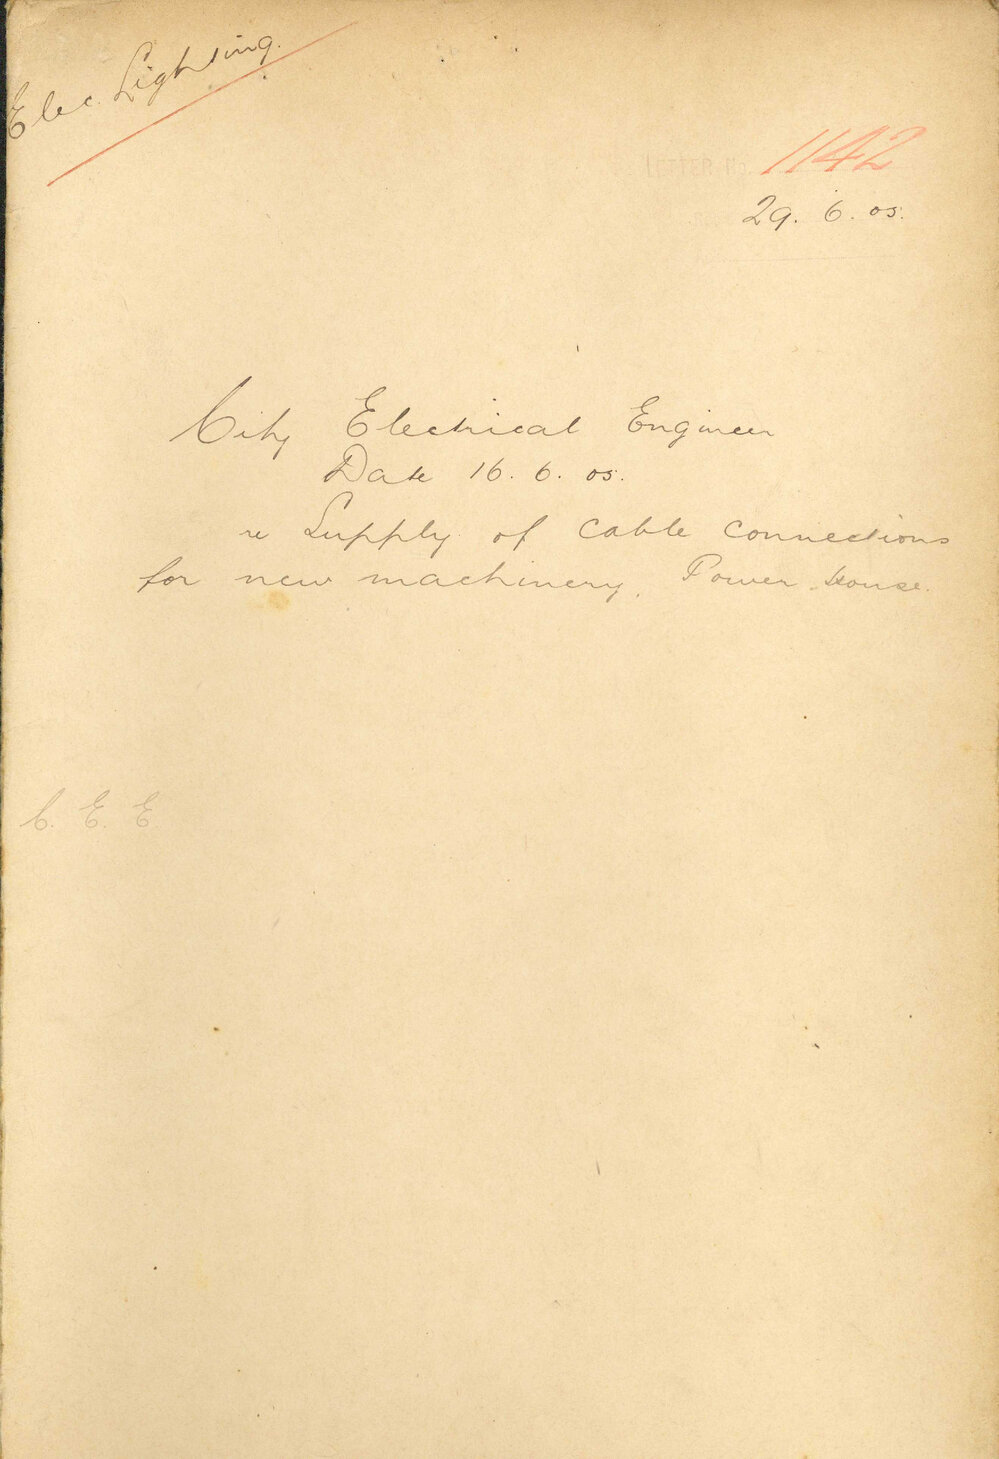 Elec. Lighting.
LETTER No. 1142
29. 6. 05.
City Electrical Engineer
Date 16. 6. 05.
re Supply of cable connections
for new machinery. Power House.
C. E. E